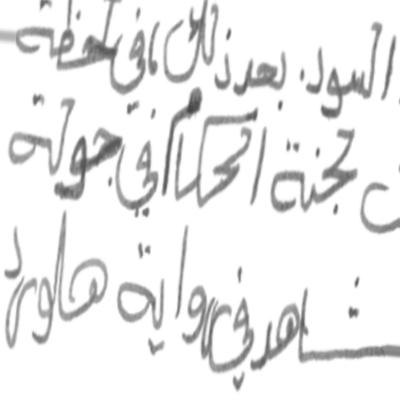 السود. بعد ذلك، في لحظة
لجنة الحكام في جولة
شاهد في رواية هاورد